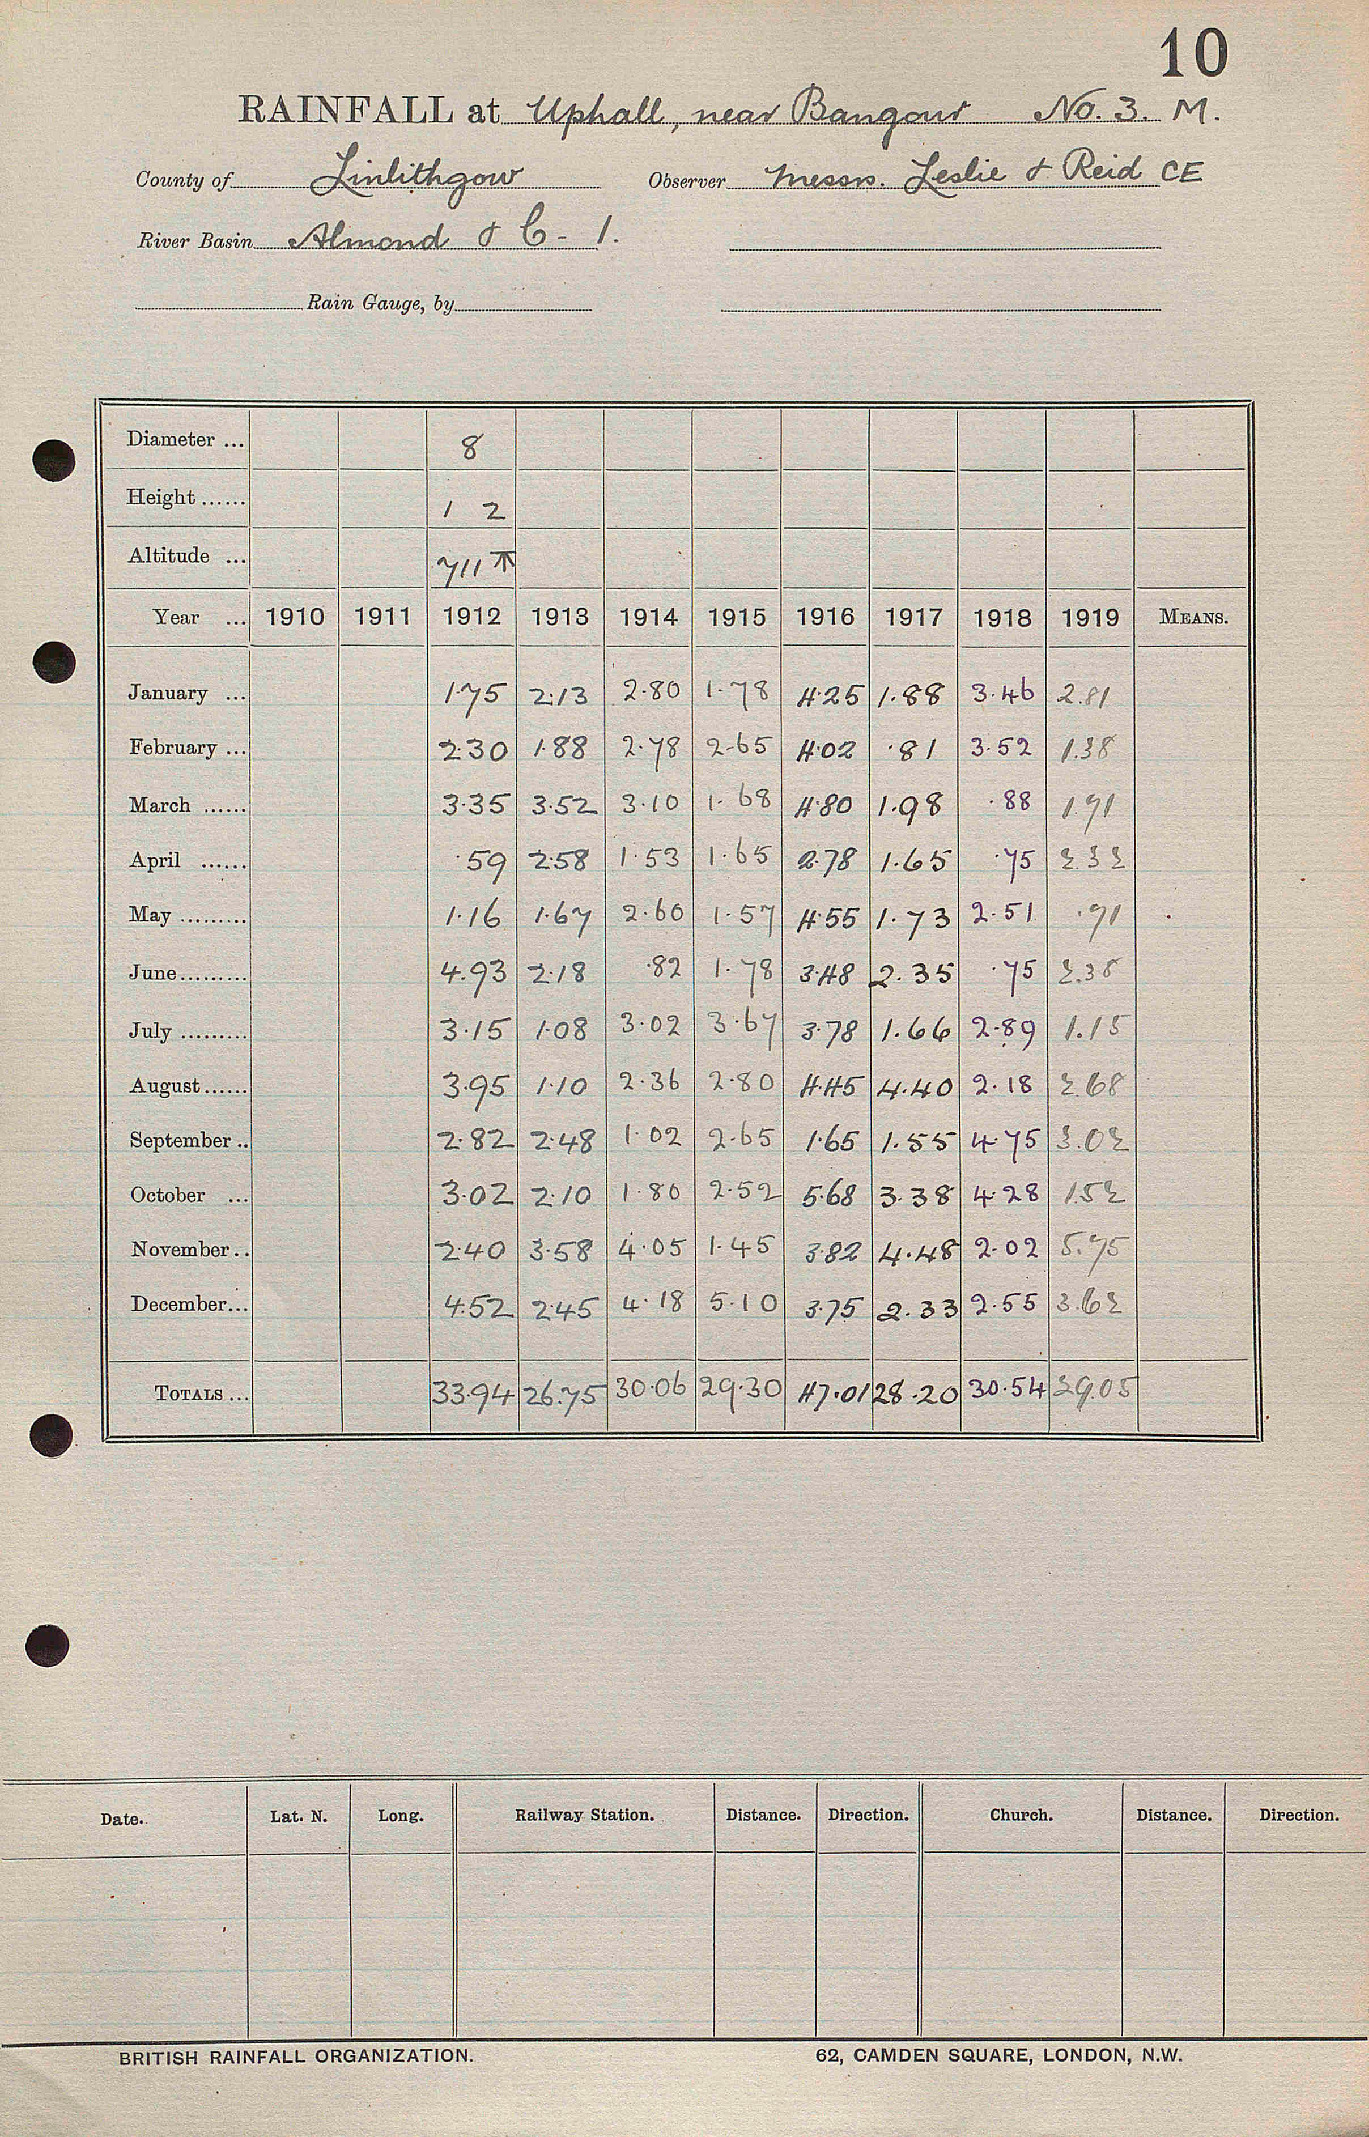 10
RAINFALL at Uphall, near Bangour No. 3. M.
County of Linlithgow Observer Messrs. Leslie & Reid CE
River Basin Almond & C - 1.
Rain Gauge, by
Diameter ... 8
Height ...... 1 2
Altitude ... 711
Year ... 1910 1911 1912 1913 1914 1915 1916 1917 1918 1919 MEANS.
January ... 1.75 2.13 2.80 1.78 4.25 1.88 3.46 2.81
February ... 2.30 1.88 2.78 2.65 4.02 .81 3.52 1.38
March ...... 3.35 3.52 3.10 1.68 4.80 1.98 .88 1.71
April ...... .59 2.58 1.53 1.65 2.78 1.65 .75 2.32
May ......... 1.16 1.67 2.60 1.57 4.55 1.73 2.51 .71
June ......... 4.93 2.18 .82 1.78 3.48 2.35 .75 2.38
July ......... 3.15 1.08 3.02 3.67 3.78 1.66 2.89 1.15
August ...... 3.95 1.10 2.36 2.80 4.45 4.40 2.18 2.68
September .. 2.82 2.48 1.02 2.65 1.65 1.55 4.75 3.02
October ... 3.02 2.10 1.80 2.52 5.68 3.38 4.28 1.52
November .. 2.40 3.58 4.05 1.45 3.82 4.48 2.02 5.75
December ... 4.52 2.45 4.18 5.10 3.75 2.33 2.55 3.62
TOTALS ... 33.94 26.75 30.06 29.30 47.01 28.20 30.54 29.05
Date. Lat. N. Long. Railway Station. Distance. Direction. Church. Distance. Direction.
BRITISH RAINFALL ORGANIZATION. 62, CAMDEN SQUARE, LONDON, N.W.